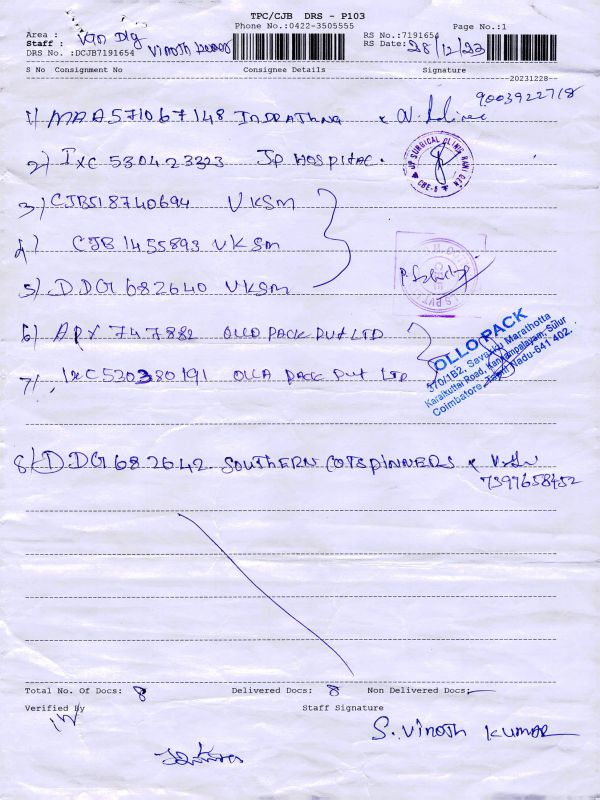 TPC/CJB DRS - P103
Phone No.:0422-3505555 Page No.:1
Area : Dlg
RS No.:7191654
Staff : Vinoth Kumar
RS Date: 28/12/23
DRS No. :DCJB7191654
S No Consignment No Consignee Details Signature
20231228
1) MAA571067148 9003922718
2) IXC 530423323 JP HOSPITAL.
JP SURGICAL CLINIC
CBE-6
3) CJB518740694 VKSM
4) CJB 1455893 VKSM
5) DDG 682640 VKSM
6) APX 747882 OLLO PACK PVT LTD
7) IXC530380191 OLLA PACK PVT LTD
OLLO PACK
370/1B2, Savukku Marathotta
Karaikuttai Road, Kannampalayam, Sulur
Coimbatore, Tamil Nadu-641 402.
8) DDG682642 SOUTHERN COTSPINNERS
7397658452
Total No. Of Docs: 8 Delivered Docs: 8 Non Delivered Docs:
Verified By Staff Signature
S. Vinoth Kumar